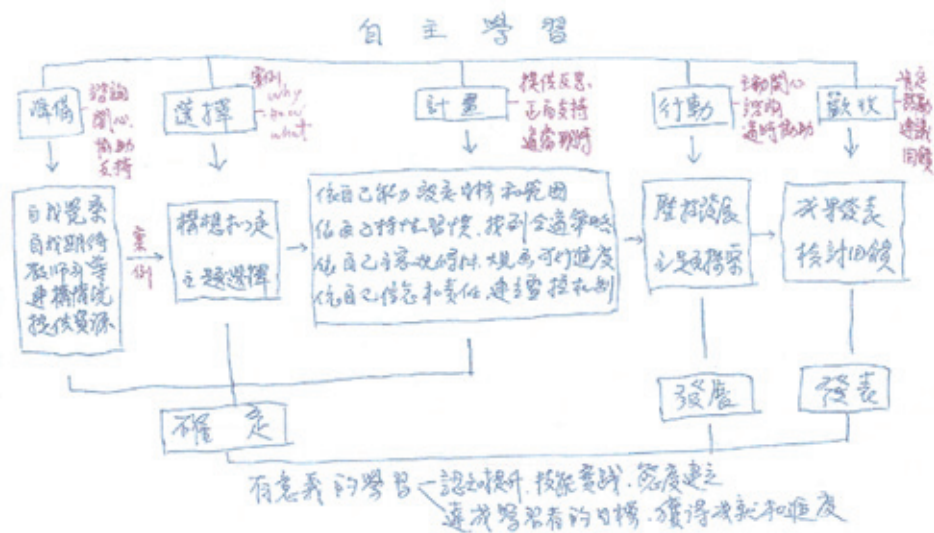 自主學習
準備
諮詢
關心
協助
支持
選擇
案例
why
how
what
計畫
提供反思
正向支持
適當期時
行動
主動關心
諮詢
適時協助
歡收
肯定
鼓勵
建議
回饋
自我覺察
自我期待
教師引導
建構情境
提供資源
案例
構想擬定
主題選擇
依自己能力設定目標和範圍
依自己特性習慣、找到合適策略
依自己主客觀條件、規畫可行進度
依自己信念和責任、建立監控機制
主題探索
成果發表
檢討回饋
確定
發展
發表
有意義的學習
認知提升、技能實踐、態度建立
達成學習者的目標、獲得成就和進度